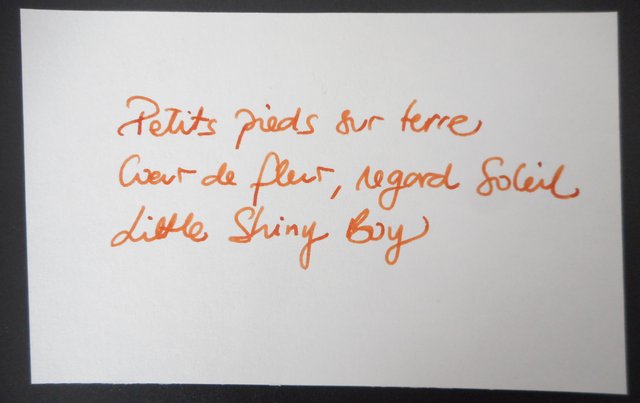 Petits pieds sur terre
Cœur de fleur, regard Soleil
Little Shiny Boy